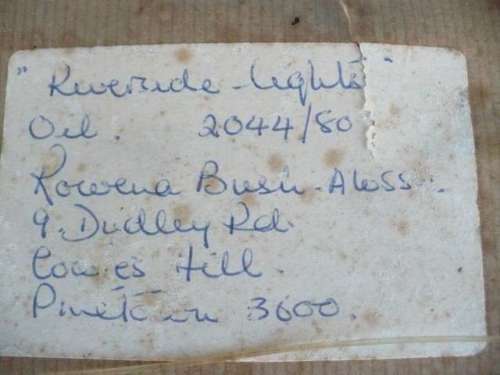 "Riverside - Lights"
Oil. 2044/80
Rowena Bush. AWSS.
9. Dudley Rd.
Cowies Hill.
Pinetown 3600.